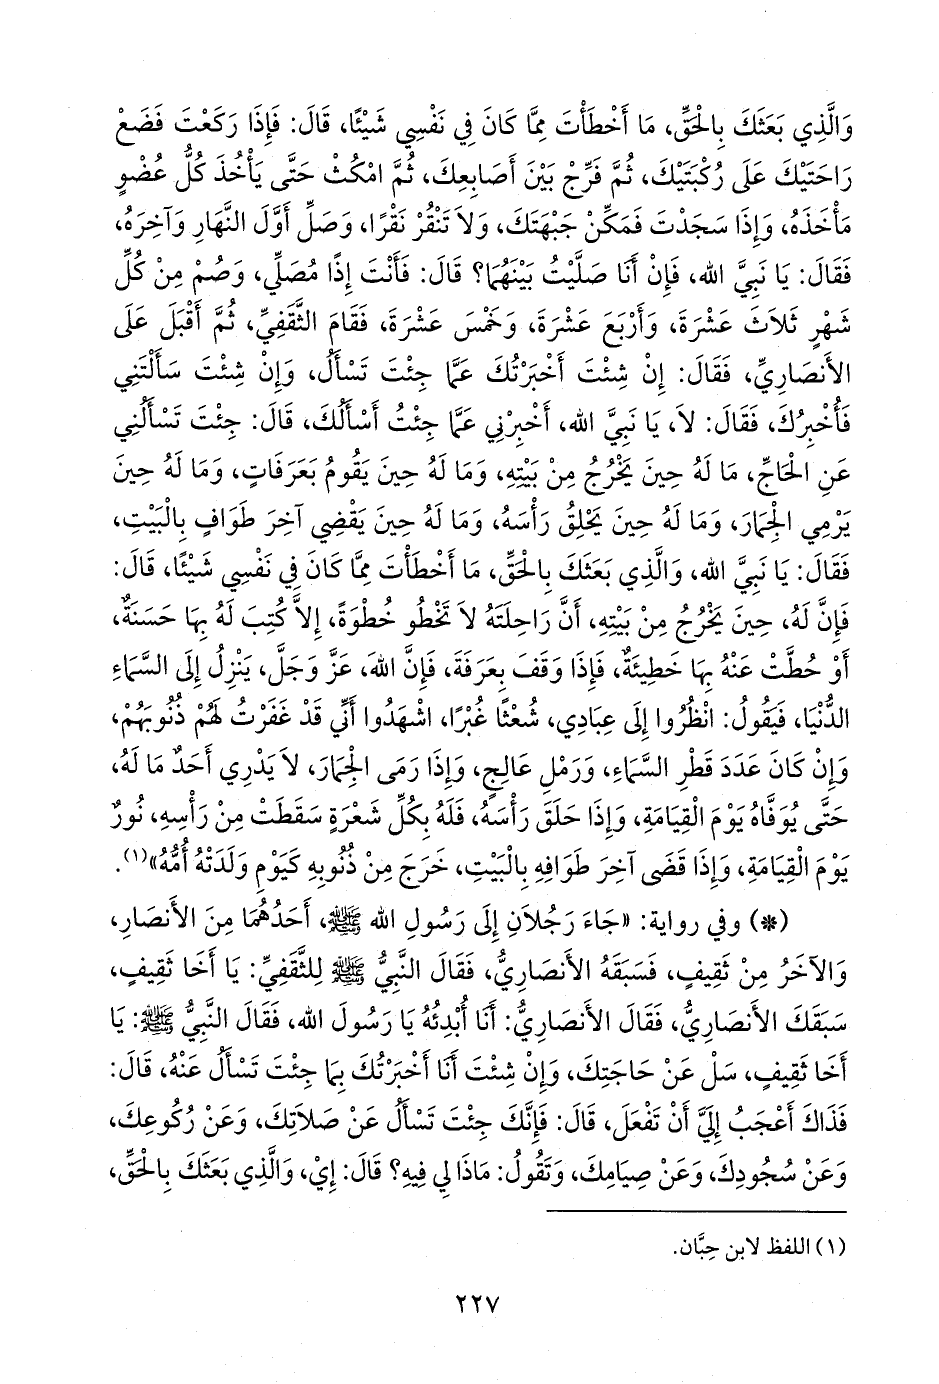 وَالَّذِي بَعَثَكَ بِالْحَقِّ، مَا أَخْطَأْتَ مِمَّا كَانَ فِي نَفْسِي شَيْئًا، قَالَ: فَإِذَا رَكَعْتَ فَضَعْ
رَاحَتَيْكَ عَلَى رُكْبَتَيْكَ، ثُمَّ فَرِّجْ بَيْنَ أَصَابِعِكَ، ثُمَّ امْكُثْ حَتَّى يَأْخُذَ كُلُّ عُضْوٍ
مَأْخَذَهُ، وَإِذَا سَجَدْتَ فَمَكِّنْ جَبْهَتَكَ، وَلاَ تَنْقُرْ نَقْرًا، وَصَلِّ أَوَّلَ النَّهَارِ وَآخِرَهُ،
فَقَالَ: يَا نَبِيَّ الله، فَإِنْ أَنَا صَلَّيْتُ بَيْنَهُمَا؟ قَالَ: فَأَنْتَ إِذًا مُصَلِّي، وَصُمْ مِنْ كُلِّ
شَهْرٍ ثَلاَثَ عَشْرَةَ، وَأَرْبَعَ عَشْرَةَ، وَخَمْسَ عَشْرَةَ، فَقَامَ الثَّقَفِيُّ، ثُمَّ أَقْبَلَ عَلَى
الأَنصَارِيِّ، فَقَالَ: إِنْ شِئْتَ أَخْبَرْتُكَ عَمَّا جِئْتَ تَسْأَلُ، وَإِنْ شِئْتَ سَأَلْتَنِي
فَأُخْبِرُكَ، فَقَالَ: لاَ، يَا نَبِيَّ الله، أَخْبِرْنِي عَمَّا جِئْتُ أَسْأَلُكَ، قَالَ: جِئْتَ تَسْأَلُنِي
عَنِ الْحَاجِّ، مَا لَهُ حِينَ يَخْرُجُ مِنْ بَيْتِهِ، وَمَا لَهُ حِينَ يَقُومُ بِعَرَفَاتٍ، وَمَا لَهُ حِينَ
يَرْمِي الْجِمَارَ، وَمَا لَهُ حِينَ يَحْلِقُ رَأْسَهُ، وَمَا لَهُ حِينَ يَقْضِي آخِرَ طَوَافٍ بِالْبَيْتِ،
فَقَالَ: يَا نَبِيَّ الله، وَالَّذِي بَعَثَكَ بِالْحَقِّ، مَا أَخْطَأْتَ مِمَّا كَانَ فِي نَفْسِي شَيْئًا، قَالَ:
فَإِنَّ لَهُ، حِينَ يَخْرُجُ مِنْ بَيْتِهِ، أَنَّ رَاحِلَتَهُ لاَ تَخْطُو خُطْوَةً، إِلاَّ كُتِبَ لَهُ بِهَا حَسَنَةٌ،
أَوْ حُطَّتْ عَنْهُ بِهَا خَطِيئَةٌ، فَإِذَا وَقَفَ بِعَرَفَةَ، فَإِنَّ اللهَ، عَزَّ وَجَلَّ، يَنْزِلُ إِلَى السَّمَاءِ
الدُّنْيَا، فَيَقُولُ: انْظُرُوا إِلَى عِبَادِي، شُعْثًا غُبْرًا، اشْهَدُوا أَنِّي قَدْ غَفَرْتُ لَهُمْ ذُنُوبَهُمْ،
وَإِنْ كَانَ عَدَدَ قَطْرِ السَّمَاءِ، وَرَمْلِ عَالِجٍ، وَإِذَا رَمَى الْجِمَارَ، لاَ يَدْرِي أَحَدٌ مَا لَهُ،
حَتَّى يُوَفَّاهُ يَوْمَ الْقِيَامَةِ، وَإِذَا حَلَقَ رَأْسَهُ، فَلَهُ بِكُلِّ شَعْرَةٍ سَقَطَتْ مِنْ رَأْسِهِ، نُورٌ
يَوْمَ الْقِيَامَةِ، وَإِذَا قَضَى آخِرَ طَوَافِهِ بِالْبَيْتِ، خَرَجَ مِنْ ذُنُوبِهِ كَيَوْمِ وَلَدَتْهُ أُمُّهُ»(١).
(*) وفي رواية: «جَاءَ رَجُلاَنِ إِلَى رَسُولِ الله ﷺ، أَحَدُهُمَا مِنَ الأَنصَارِ،
وَالآخَرُ مِنْ ثَقِيفٍ، فَسَبَقَهُ الأَنصَارِيُّ، فَقَالَ النَّبِيُّ ﷺ لِلثَّقَفِيِّ: يَا أَخَا ثَقِيفٍ،
سَبَقَكَ الأَنصَارِيُّ، فَقَالَ الأَنصَارِيُّ: أَنَا أُبْدِئُهُ يَا رَسُولَ الله، فَقَالَ النَّبِيُّ ﷺ: يَا
أَخَا ثَقِيفٍ، سَلْ عَنْ حَاجَتِكَ، وَإِنْ شِئْتَ أَنَا أَخْبَرْتُكَ بِمَا جِئْتَ تَسْأَلُ عَنْهُ، قَالَ:
فَذَاكَ أَعْجَبُ إِلَيَّ أَنْ تَفْعَلَ، قَالَ: فَإِنَّكَ جِئْتَ تَسْأَلُ عَنْ صَلاَتِكَ، وَعَنْ رُكُوعِكَ،
وَعَنْ سُجُودِكَ، وَعَنْ صِيَامِكَ، وَتَقُولُ: مَاذَا لِي فِيهِ؟ قَالَ: إِيْ، وَالَّذِي بَعَثَكَ بِالْحَقِّ،
(١) اللفظ لابن حِبَّان.
٢٢٧